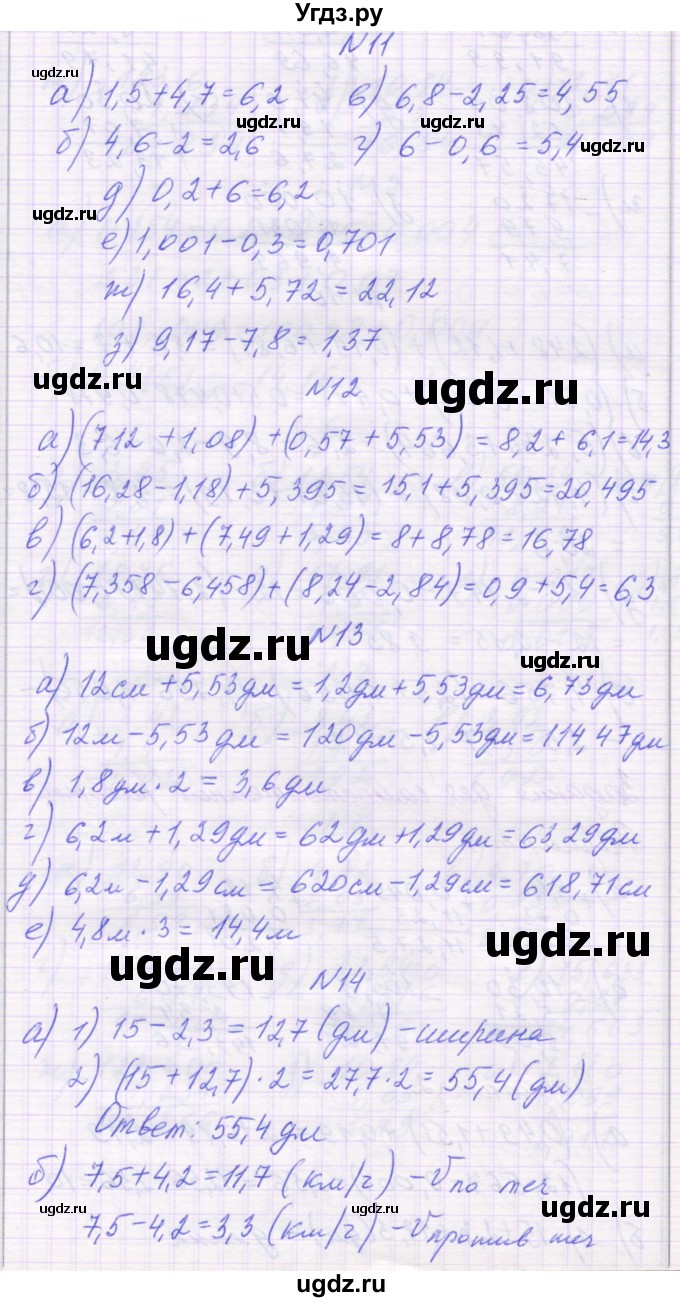 Угдз.ру
N11
а) 1,5+4,7=6,2 в) 6,8-2,25=4,55
б) 4,6-2=2,6 г) 6-0,6=5,4
д) 0,2+6=6,2
е) 1,001-0,3=0,701
ж) 16,4+5,72=22,12
з) 9,17-7,8=1,37
N12
а) (7,12+1,08)+(0,57+5,53)=8,2+6,1=14,3
б) (16,28-1,18)+5,395=15,1+5,395=20,495
в) (6,2+1,8)+(7,49+1,29)=8+8,78=16,78
г) (7,358-6,458)+(8,24-2,84)=0,9+5,4=6,3
N13
а) 12см+5,53дм=1,2дм+5,53дм=6,73дм
б) 12м-5,53дм=120дм-5,53дм=114,47дм
в) 1,8дм·2=3,6дм
г) 6,2м+1,29дм=62дм+1,29дм=63,29дм
д) 6,2м-1,29см=620см-1,29см=618,71см
е) 4,8м·3=14,4м
N14
а) 1) 15-2,3=12,7(дм)-ширина
2) (15+12,7)·2=27,7·2=55,4(дм)
Ответ: 55,4дм
б) 7,5+4,2=11,7(км/ч)-V по теч
7,5-4,2=3,3(км/ч)-V против теч
ugdz.ru
ugdz.ru
ugdz.ru
ugdz.ru
ugdz.ru
ugdz.ru
ugdz.ru
ugdz.ru
ugdz.ru
ugdz.ru
ugdz.ru
ugdz.ru
ugdz.ru
ugdz.ru